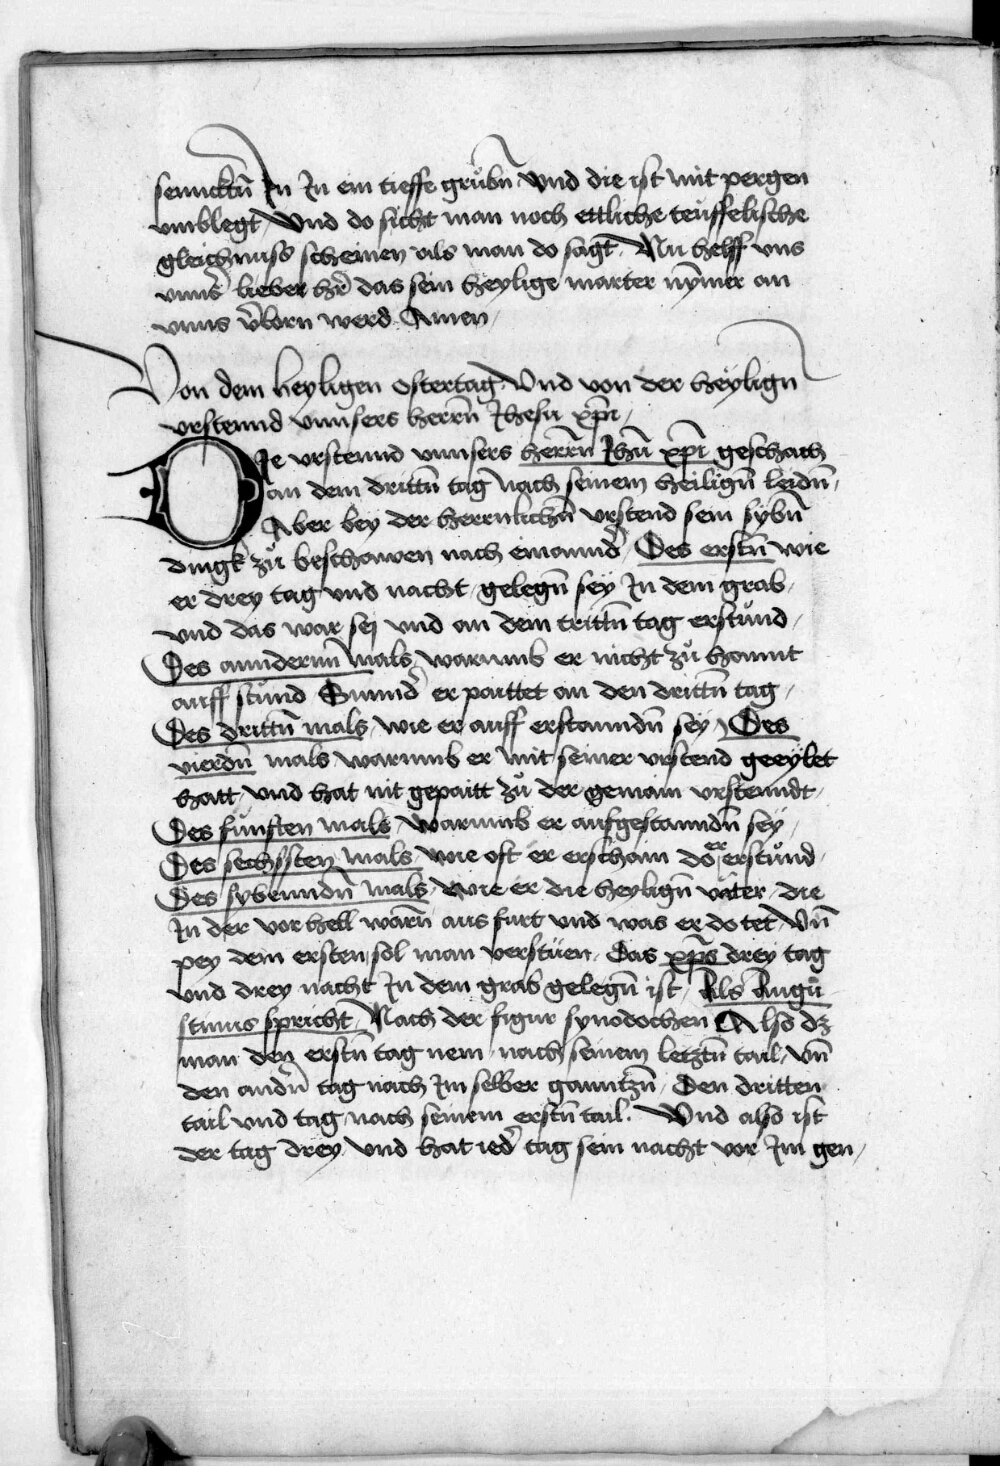 senncktn̄ In In ein tieffe grůbn̄ Vnd die ist mit pergen
vmblegt, Vnd do sicht man noch ettliche teuffelische
gleichnuss scheinen als man do sagt. Nu helff vns
vnns̄ lieber hr̄ das sein heylige marter nym̄er an
vnns v̄lorn werd Amen,
Von dem heyligen ostertag Vnd von der heylign̄
vrstennd vnnsers herrn̄ Jhesu xp̄i,
DIe vrstennd vnnsers herrn̄ Jhū xp̄i geschach
an dem drittn̄ tag nach seinem heilign̄ leidn̄,
Aber bey der herrnlichn̄ vrstend sein sybn̄
dingk zů beschawen nach einannd̄ Des erstn̄ wie
er drey tag vnd nacht gelegn̄ sey In dem grab,
vnd das war sej vnd an dem trittn̄ tag erstůnd,
Des anndernn̄ mals, warumb er nicht zů hannt
auff stůnd Sunnd̄ er paittet an den drittn̄ tag,
Des drittn̄ mals, wie er auff erstanndn̄ sey, Des
vierdn̄ mals warumb er mit seiner vrstend geeylet
hatt, vnd hat nit gepaitt zů der gemain vrstenndt,
Des fůnfften mals, warumb er aufgestanndn̄ sey,
Des sechssten mals, wie oft er erschain do er erstůnd,
Des sybenndn̄ mals wie er die heylign̄ väter, die
In der vorhell warn̄ aus furt vnd was er do tet, Vn̄
pey dem ersten sol man versteen, Das xp̄s drey tag
vnd drey nacht In dem grab gelegn̄ ist, Als Augu
stinus spricht, Nach der figur synodochen Also dz
man den erstn̄ tag nem, nach seinem letztn̄ tail, vn̄
den andn̄ tag nach Im selber ganntzn̄, Den dritten
tail vnd tag nach seinem erstn̄ tail. Vnd also ist
der tag drey, vnd hat ied̄ tag sein nacht vor Im gen,